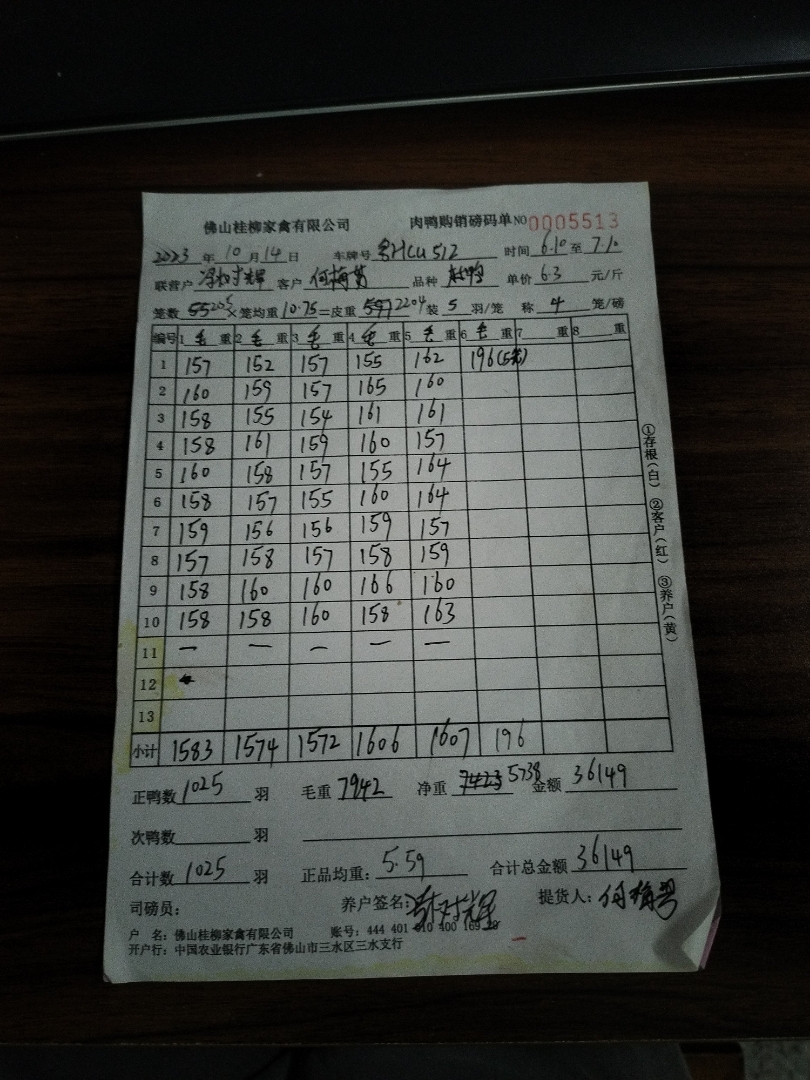 佛山桂柳家禽有限公司 肉鸭购销磅码单 NO 0005513
2023 年 10 月 14 日 车牌号 HCU512 时间 6.10 至 7.10
联营户 客户 何梅 品种 单价 6.3 元/斤
笼数 205 × 笼均重 10.75 = 皮重 2204 装 5 羽/笼 称 4 笼/磅
编号 1 毛 重 2 毛 重 3 毛 重 4 毛 重 5 毛 重 6 毛 重 7 重 8 重
1 157 152 157 155 162 196(5笼)
2 160 159 157 165 160
3 158 155 154 161 161
4 158 161 159 160 157
5 160 158 157 155 164
6 158 157 155 160 164
7 159 156 156 159 157
8 157 158 157 158 159
9 158 160 160 166 160
10 158 158 160 158 163
11 — — — — —
12
13
小计 1583 1574 1572 1606 1607 196
正鸭数 1025 羽 毛重 7942 净重 7423 5738 金额 36149
次鸭数 羽
合计数 1025 羽 正品均重: 5.59 合计总金额 36149
司磅员: 养户签名: 提货人: 何梅
户 名: 佛山桂柳家禽有限公司 账号: 444 401 010 400 169
开户行: 中国农业银行广东省佛山市三水区三水支行
①存根(白) ②客户(红) ③养户(黄)